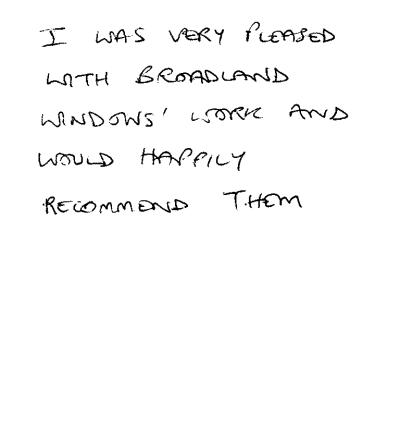 I WAS VERY PLEASED
WITH BROADLAND
WINDOWS' WORK AND
WOULD HAPPILY
RECOMMEND THEM